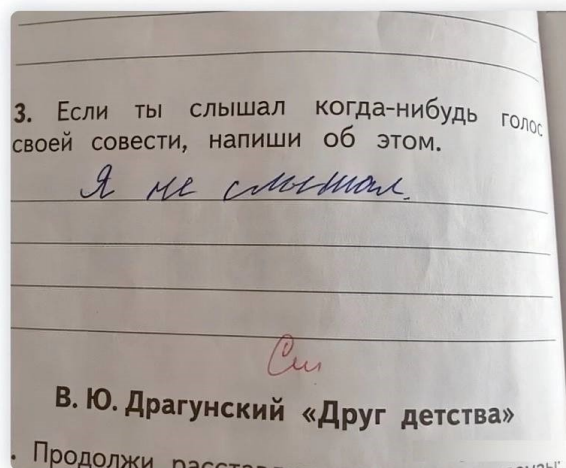 3. Если ты слышал когда-нибудь голос
своей совести, напиши об этом.
Я не слышал.
См
В. Ю. Драгунский «Друг детства»
. Продолжи